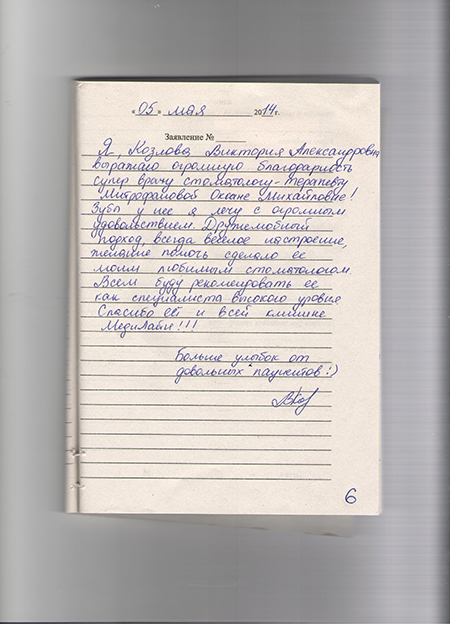 « 05 » мая 2014 г.
Заявление №
Я, Козлова Виктория Александровна
выражаю огромную благодарность
супер врачу стоматологу-терапевту
Митрофановой Оксане Михайловне!
Зубы у нее я лечу с огромным
удовольствием. Дружелюбный
подход, всегда веселое настроение,
желание помочь сделало ее
моим любимым стоматологом.
Всем буду рекомендовать ее
как специалиста высокого уровня
Спасибо ей и всей клинике
МедиЛайн!!!
Больше улыбок от
довольных пациентов :)
6